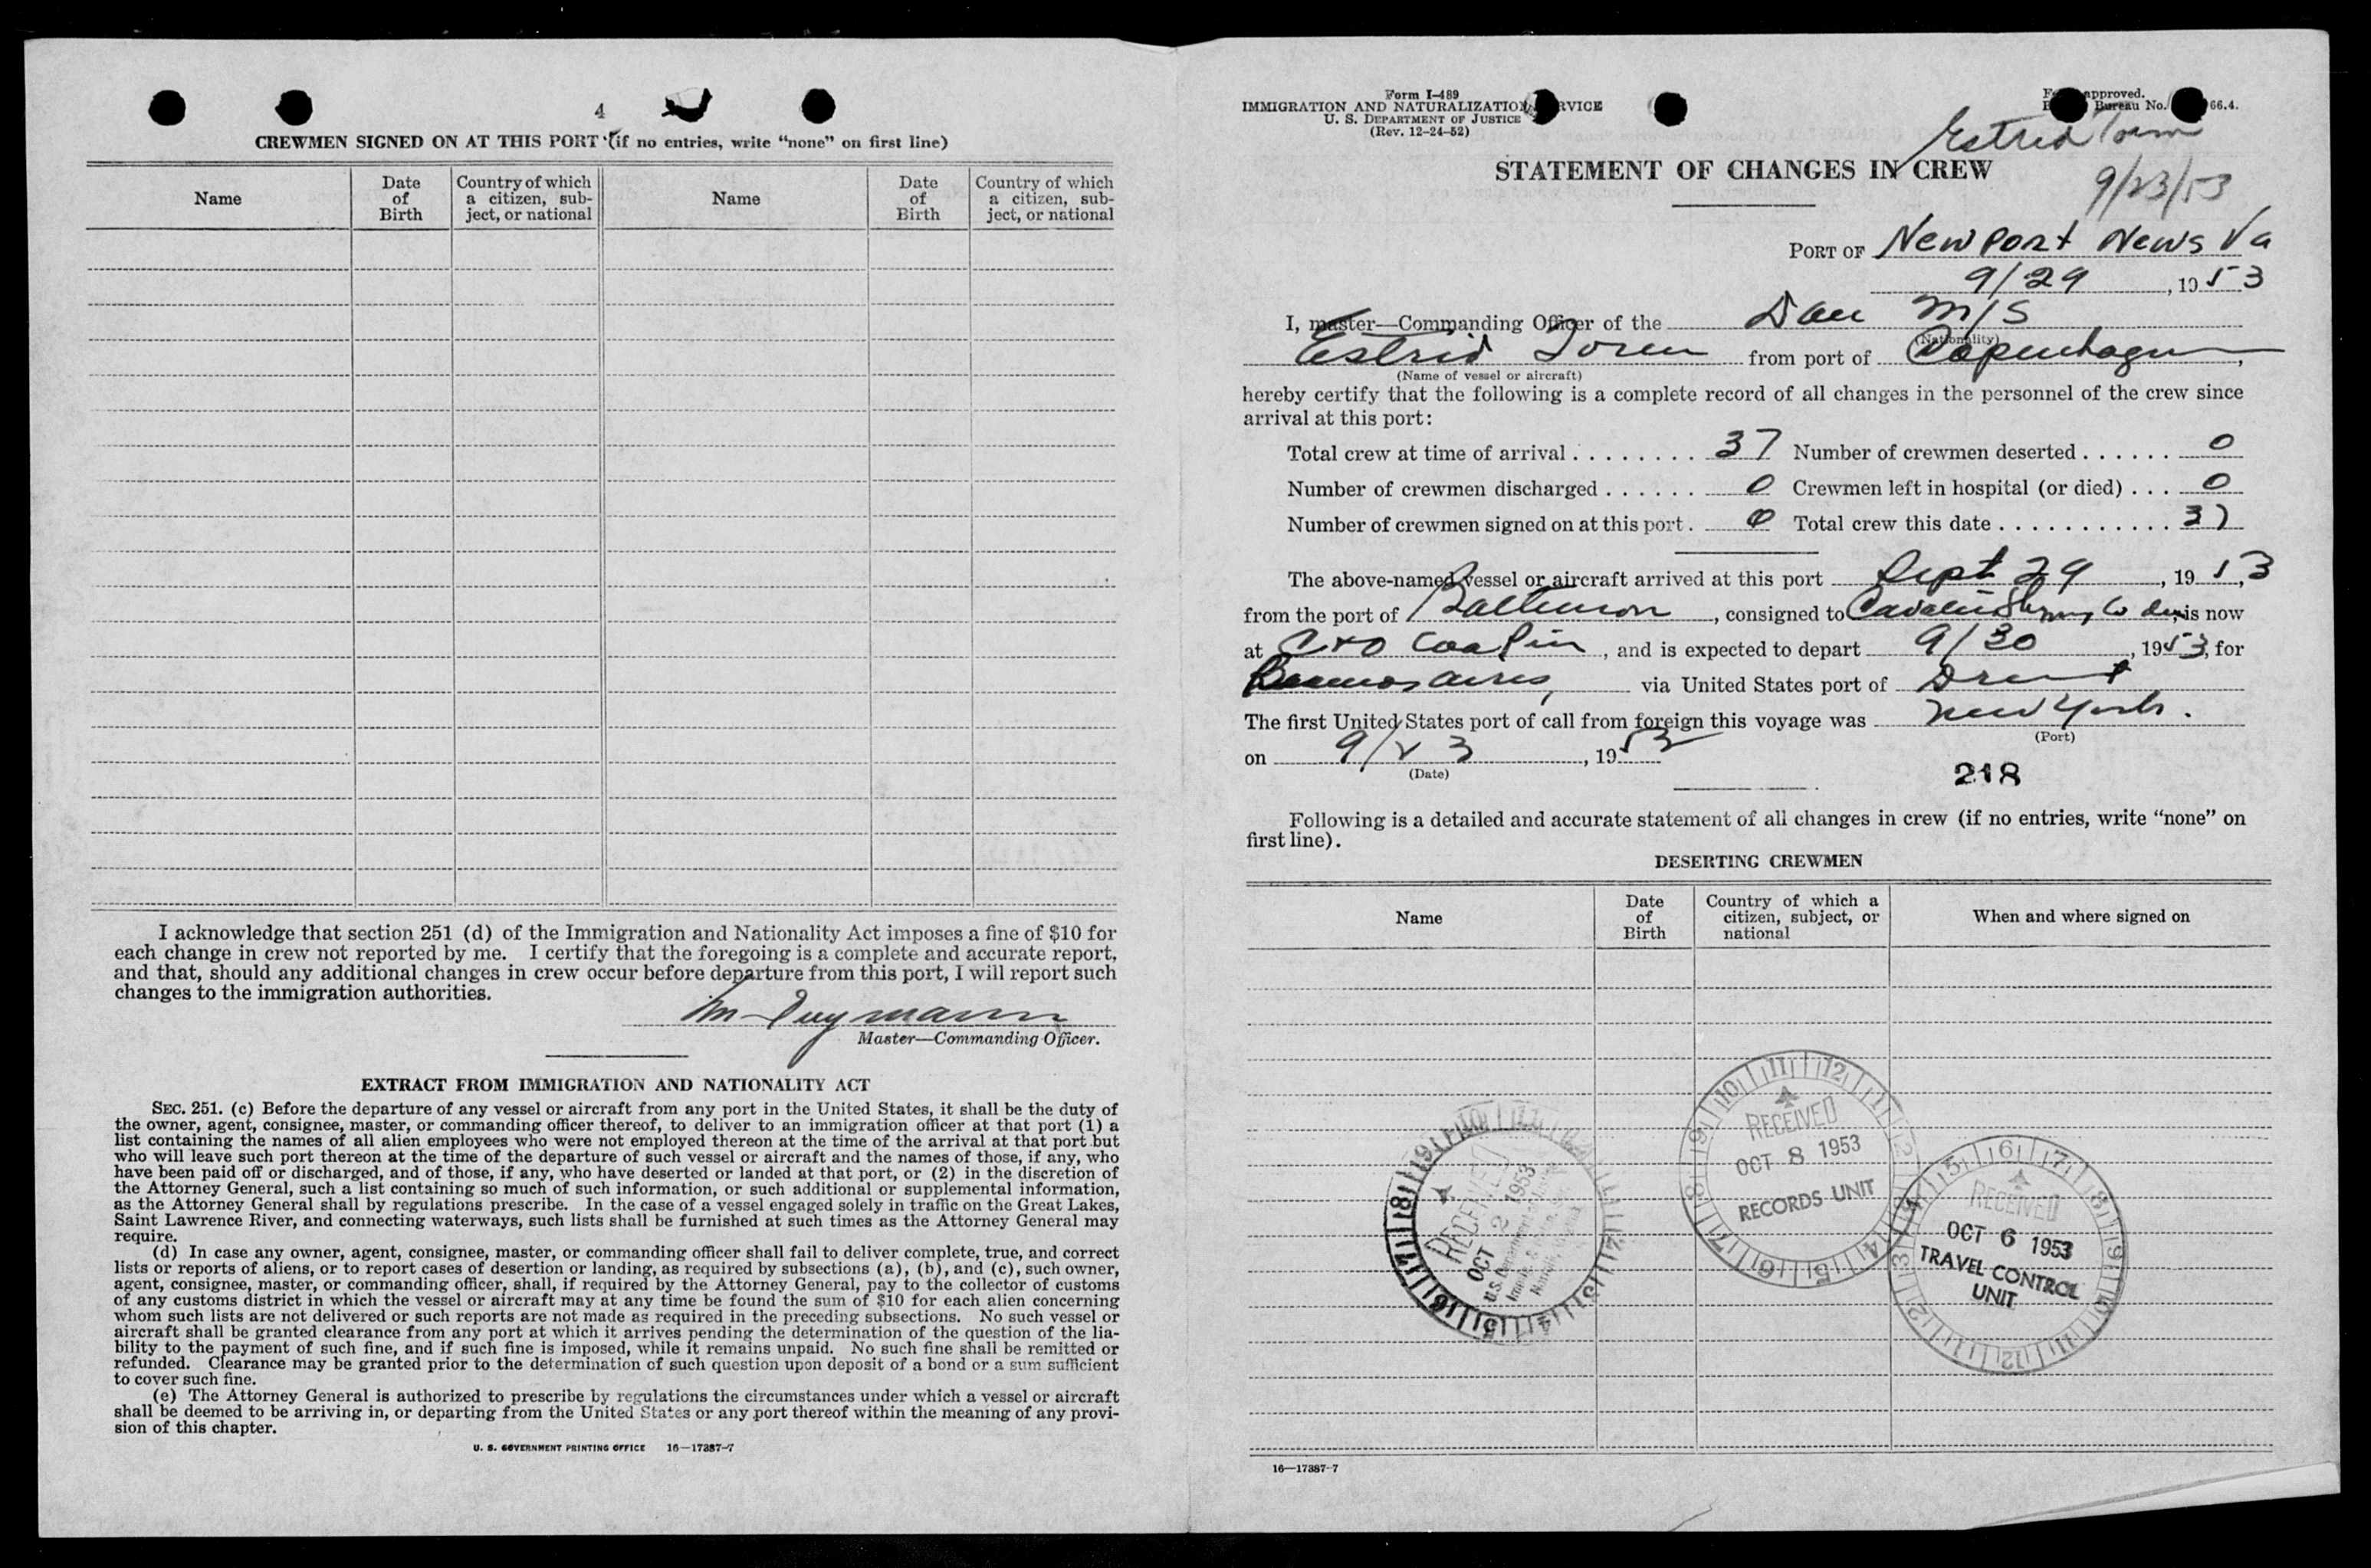 4
CREWMEN SIGNED ON AT THIS PORT (if no entries, write “none” on first line)
Name
Date of Birth
Country of which a citizen, subject, or national
Name
Date of Birth
Country of which a citizen, subject, or national
I acknowledge that section 251 (d) of the Immigration and Nationality Act imposes a fine of $10 for
each change in crew not reported by me. I certify that the foregoing is a complete and accurate report,
and that, should any additional changes in crew occur before departure from this port, I will report such
changes to the immigration authorities.
Master—Commanding Officer.
EXTRACT FROM IMMIGRATION AND NATIONALITY ACT
SEC. 251. (c) Before the departure of any vessel or aircraft from any port in the United States, it shall be the duty of
the owner, agent, consignee, master, or commanding officer thereof, to deliver to an immigration officer at that port (1) a
list containing the names of all alien employees who were not employed thereon at the time of the arrival at that port but
who will leave such port thereon at the time of the departure of such vessel or aircraft and the names of those, if any, who
have been paid off or discharged, and of those, if any, who have deserted or landed at that port, or (2) in the discretion of
the Attorney General, such a list containing so much of such information, or such additional or supplemental information,
as the Attorney General shall by regulations prescribe. In the case of a vessel engaged solely in traffic on the Great Lakes,
Saint Lawrence River, and connecting waterways, such lists shall be furnished at such times as the Attorney General may
require.
(d) In case any owner, agent, consignee, master, or commanding officer shall fail to deliver complete, true, and correct
lists or reports of aliens, or to report cases of desertion or landing, as required by subsections (a), (b), and (c), such owner,
agent, consignee, master, or commanding officer, shall, if required by the Attorney General, pay to the collector of customs
of any customs district in which the vessel or aircraft may at any time be found the sum of $10 for each alien concerning
whom such lists are not delivered or such reports are not made as required in the preceding subsections. No such vessel or
aircraft shall be granted clearance from any port at which it arrives pending the determination of the question of the lia-
bility to the payment of such fine, and if such fine is imposed, while it remains unpaid. No such fine shall be remitted or
refunded. Clearance may be granted prior to the determination of such question upon deposit of a bond or a sum sufficient
to cover such fine.
(e) The Attorney General is authorized to prescribe by regulations the circumstances under which a vessel or aircraft
shall be deemed to be arriving in, or departing from the United States or any port thereof within the meaning of any provi-
sion of this chapter.
U. S. GOVERNMENT PRINTING OFFICE 16—17387-7
Form I-489
IMMIGRATION AND NATURALIZATION RVICE
U. S. DEPARTMENT OF JUSTICE
(Rev. 12-24-52)
approved.
Bureau No. 66.4.
Estrid Torm
STATEMENT OF CHANGES IN CREW
9/23/53
PORT OF Newport News Va
9/29, 1953
I, master—Commanding Officer of the Dan M/S
(Nationality)
Estrid Torm from port of Copenhagen,
(Name of vessel or aircraft)
hereby certify that the following is a complete record of all changes in the personnel of the crew since
arrival at this port:
Total crew at time of arrival 37 Number of crewmen deserted 0
Number of crewmen discharged 0 Crewmen left in hospital (or died) 0
Number of crewmen signed on at this port 0 Total crew this date 37
The above-named vessel or aircraft arrived at this port Sept 29, 1953
from the port of Baltimore, consigned to is now
at C+O Coal Pier, and is expected to depart 9/30, 1953, for
Buenos Aires, via United States port of Direct
The first United States port of call from foreign this voyage was New York.
(Port)
on 9/23, 1953
(Date)
218
Following is a detailed and accurate statement of all changes in crew (if no entries, write “none” on
first line).
DESERTING CREWMEN
Name
Date of Birth
Country of which a citizen, subject, or national
When and where signed on
RECEIVED
OCT 2 1953
RECEIVED
OCT 8 1953
RECORDS UNIT
RECEIVED
OCT 6 1953
TRAVEL CONTROL
UNIT
16—17387-7